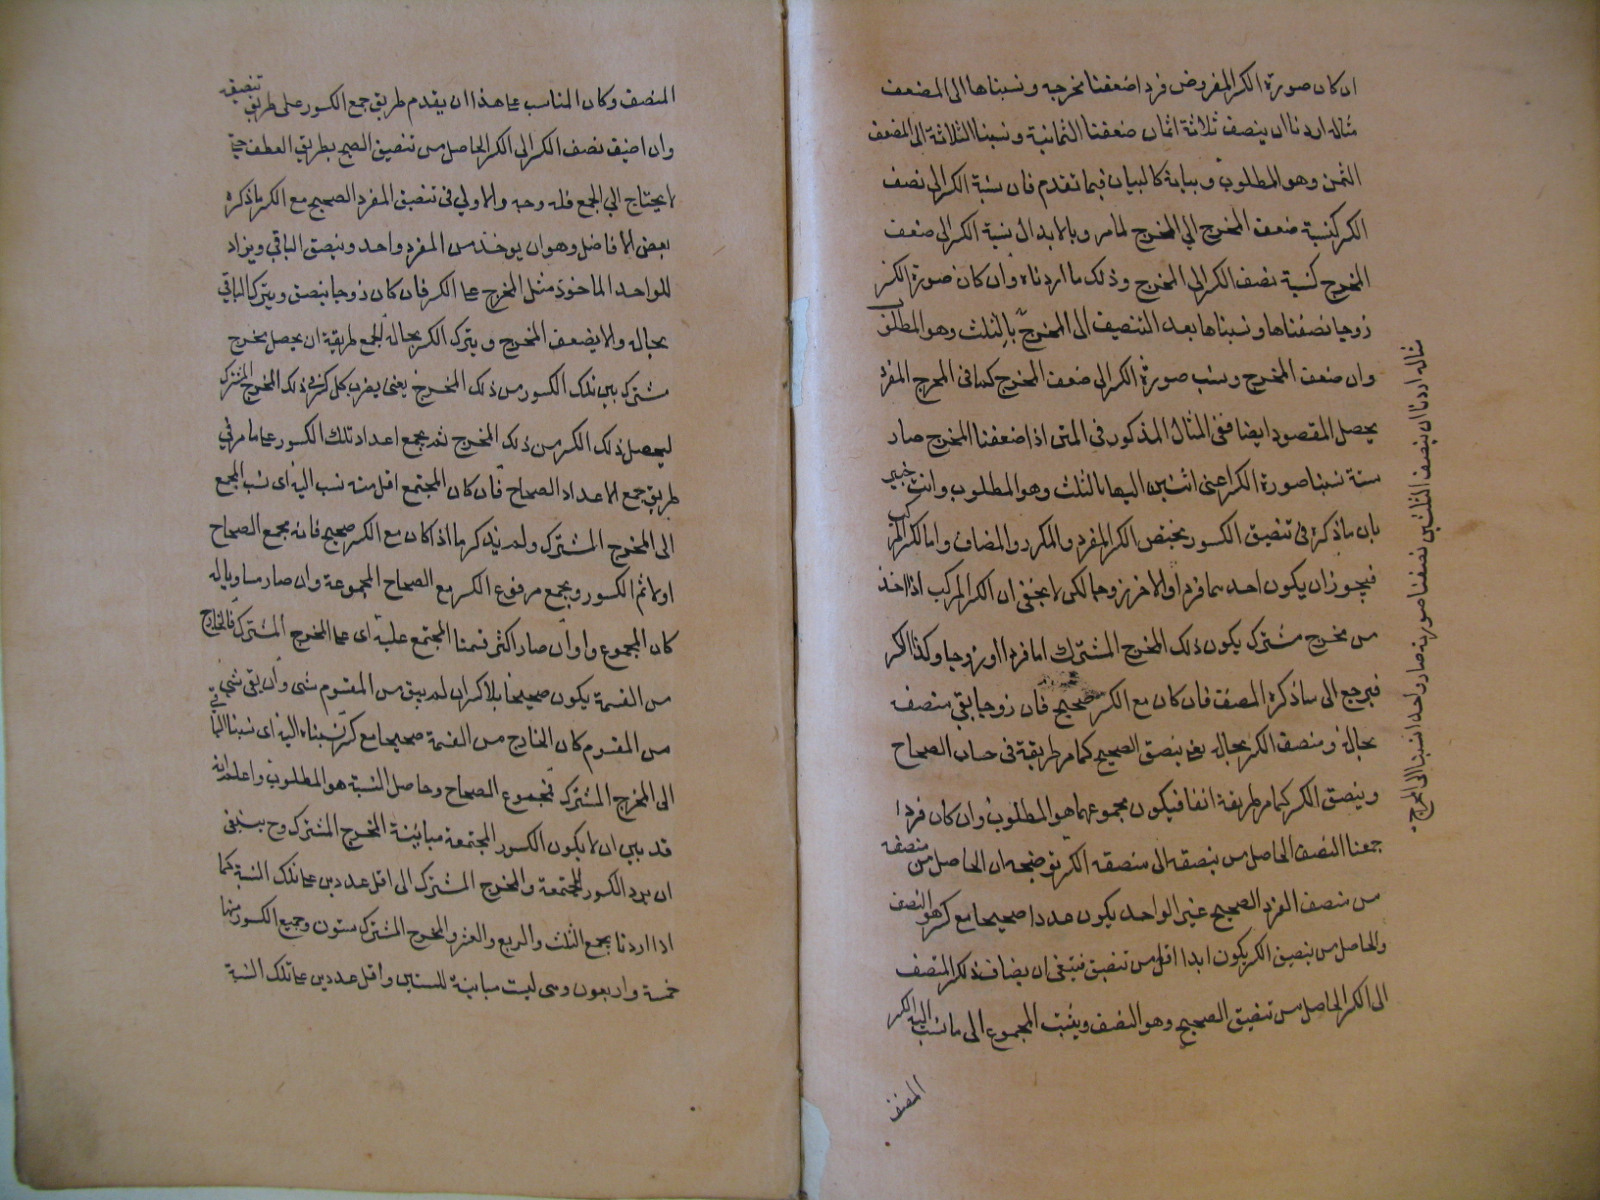 ان كان صورة الكسر المفروض فردا ضعفنا مخرجه ونسبناها الى المضعف
مثاله اردنا ان ينصف ثلاثة اثمان ضعفنا الثمانية ونسبنا الثلاثة الى المضعف
الثمن وهو المطلوب وبيانه كالبيان فيما تقدم فان نسبة الكسر الى نصف
الكسر كنسبة ضعف المخرج الى المخرج لما مر وبالابدال نسبة الكسر الى ضعف
المخرج كنسبة نصف الكسر الى المخرج وذلك ما اردناه وان كان صورة الكسر
زوجا نصفناها ونسبناها بعد التنصيف الى المخرج بالثلث وهو المطلوب
وان ضعف المخرج ونسب صورة الكسر الى ضعف المخرج كما فى المخرج المفرد
يحصل المقصود ايضا ففى المثال المذكور فى المتن اذا ضعفنا المخرج صار
ستة نسبنا صورة الكسر اعنى اثنين اليها بالثلث وهو المطلوب وانت خبير
بان ما ذكره فى تنصيف الكسور يختص الكسر المفرد والمكرر والمضاف واما الكسر المركب
فيجوز ان يكون احدهما فردا والاخر زوجا لكن لا يخفى ان الكسر المركب اذا اخذ
من مخرج مشترك يكون ذلك المخرج المشترك اما فردا او زوجا وكذا الكسر
فيرجع الى ما ذكره المصنف فان كان مع الكسر صحيح فان زوجا بقى منصف
بحاله ومنصف الكسر بحاله يعنى ينصف الصحيح كما مر طريقه فى حساب الصحاح
وينصف الكسر كما مر طريقه انفا فيكون مجموعهما هو المطلوب وان كان فردا
جمعنا النصف الحاصل من تنصيفه الى منصفه الكسر توضيحه ان الحاصل من منصفه
من منصف الفرد الصحيح غير الواحد يكون عددا صحيحا مع كسر هو النصف
والحاصل من تنصيف الكسر يكون ابدا اقل من تنصيف فينبغى ان يضاف ذلك المنصف
الى الكسر الحاصل من تنصيف الصحيح وهو النصف وينسب المجموع الى ما نسب اليه الكسر
المنصف
مثاله اردنا ان ينصف الثلثين نصفنا صورته صار واحدا نسبنا الى المخرج
المنصف وكان المناسب على هذا ان يقدم طريق جمع الكسور على طريق تنصيفه
وان اضيف نصف الكسر الى الكسر الحاصل من تنصيف الصحيح بطريق العطف حتى
لا يحتاج الى الجمع فله وجه والاولى فى تنصيف المفرد الصحيح مع الكسر ما ذكره
بعض الافاضل وهو ان يوخذ من المفرد واحد وينصف الباقى ويزاد
للواحد الماخوذ مثل المخرج على الكسر فان كان زوجا ينصف ويترك الباقى
بحاله والا يضعف المخرج ويترك الكسر بحاله الجمع طريقه ان يحصل مخرج
مشترك بين تلك الكسور من ذلك المخرج يعنى يضرب كل كسر فى ذلك المخرج المشترك
ليحصل ذلك الكسر من ذلك المخرج ثم يجمع اعداد تلك الكسور على ما مر فى
طريق جمع الاعداد الصحاح فان كان المجتمع اقل منه نسب اليه اى نسب المجمع
الى المخرج المشترك ولم يذكر ما اذا كان مع الكسر صحيح فانه يجمع الصحاح
اولا ثم الكسور ويجمع مرفوع الكسر مع الصحاح المجموعة وان صار مساويا له
كان المجموع واحدا وان صار اكثر قسمنا المجتمع عليه اى على المخرج المشترك فالخارج
من القسمة يكون صحيحا بلا كسر ان لم يبق من المقسوم شى وان بقى شى
من المقسوم كان الخارج من القسمة صحيحا مع كسر نسبناه اليه اى نسبنا الباقى
الى المخرج المشترك فمجموع الصحاح وحاصل النسبة هو المطلوب واعلم انه
قد يبين ان لا يكون الكسور المجتمعة مباينة المخرج المشترك وح ينبغى
ان يرد الكسور المجتمعة والمخرج المشترك الى اقل عددين على تلك النسبة كما
اذا اردنا بجمع الثلث والربع والعشر والمخرج المشترك ستون وجميع الكسور منها
خمسة واربعون وهى ليست مباينة للستين واقل عددين على تلك النسبة